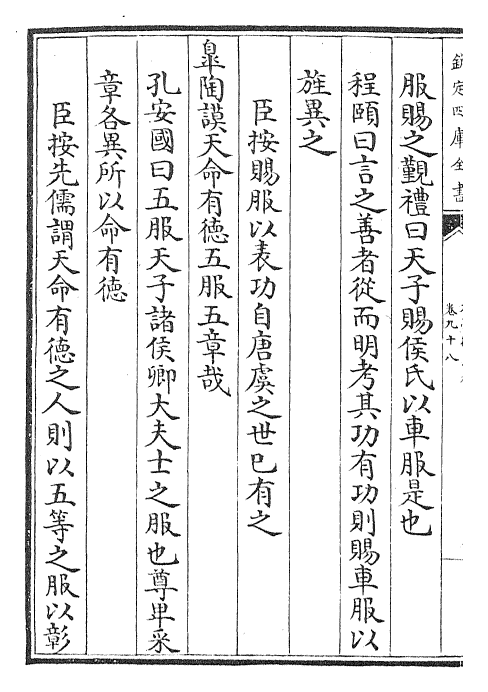 欽定四庫全書
卷九十八
服賜之覲禮曰天子賜侯氏以車服是也
程頤曰言之善者從而明考其功有功則賜車服以
旌異之
臣按賜服以表功自唐虞之世已有之
皐陶謨天命有德五服五章哉
孔安國曰五服天子諸侯卿大夫士之服也尊卑采
章各異所以命有德
臣按先儒謂天命有德之人則以五等之服以彰